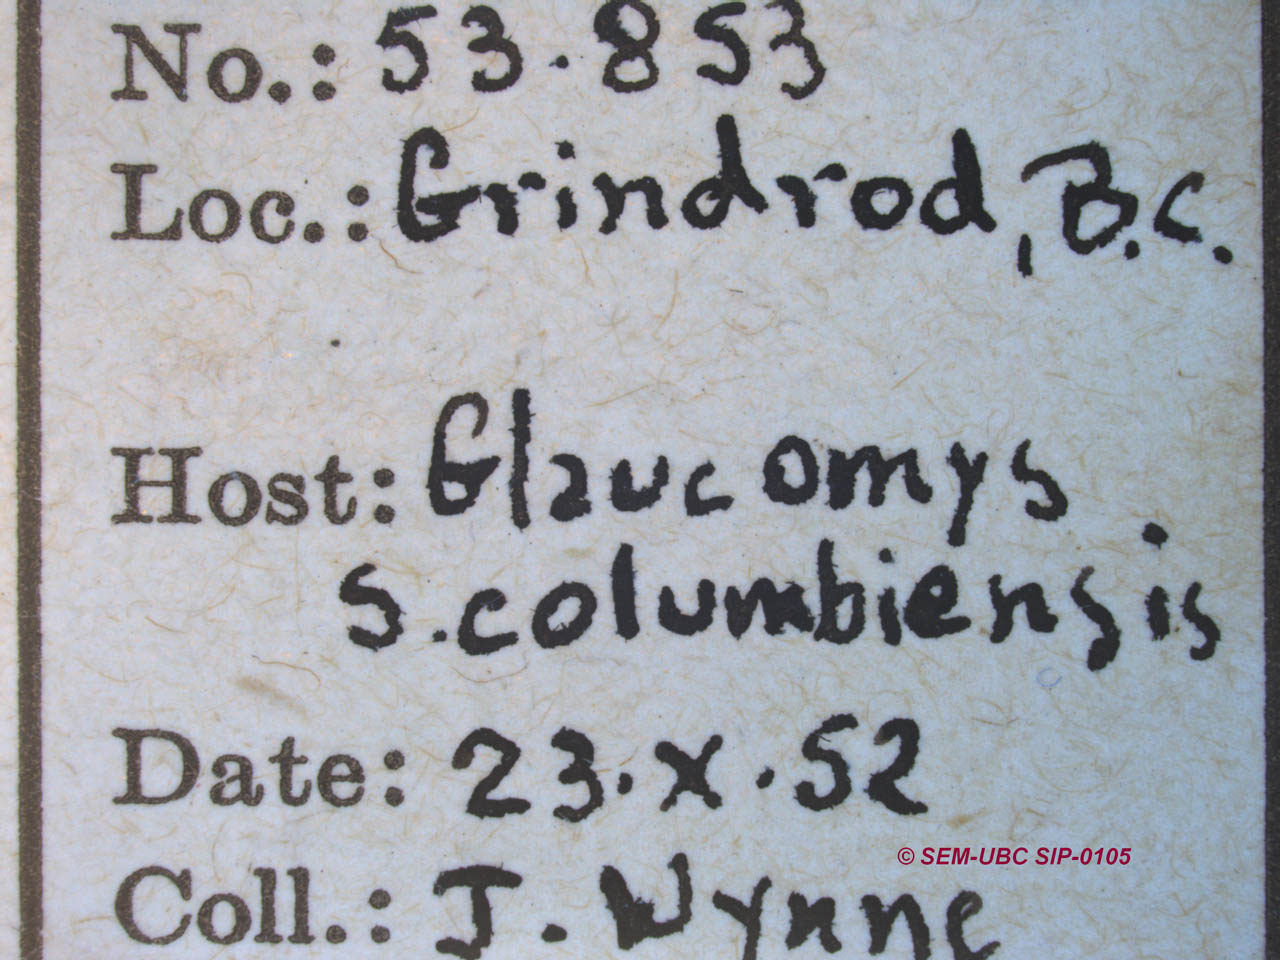 No.: 53.853
Loc.: Grindrod, B.C.
Host: Glaucomys
s. columbiensis
Date: 23.X.52
© SEM-UBC SIP-0105
Coll.: J. Wynne